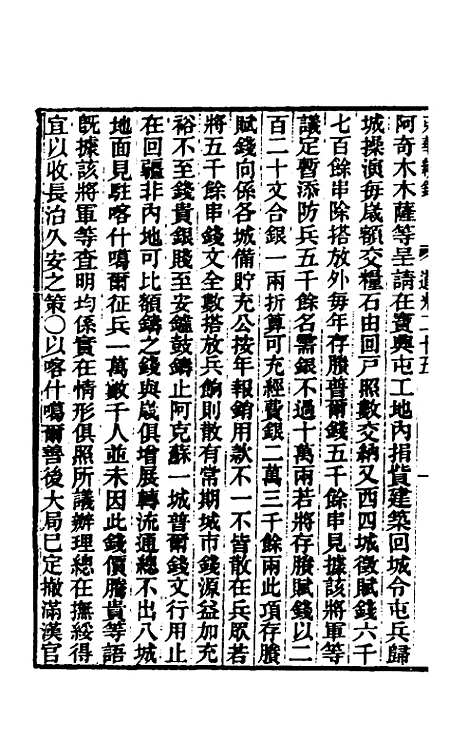 東華續錄 道光二十五
阿奇木木薩等呈請在寶興屯工地內捐貲建築回城令屯兵歸
城操演每歲額交糧石由回戶照數交納又西四城徵賦錢六千
七百餘串除搭放外每年存賸普爾錢五千餘串見據該將軍等
議定暫添防兵五千餘名需銀不過十萬兩若將存賸賦錢以二
百二十文合銀一兩折算可充經費銀二萬三千餘兩此項存賸
賦錢向係各城備貯充公按年報銷用款不一不皆散在兵眾若
將五千餘串錢文全數搭放兵餉則散有常期城市錢源益加充
裕不至錢貴銀賤至安鑪鼓鑄止阿克蘇一城普爾錢文行用止
在回疆非內地可比額鑄之錢與歲俱增展轉流通總不出八城
地面見駐喀什噶爾征兵一萬數千人並未因此錢價騰貴等語
旣據該將軍等查明均係實在情形俱照所議辦理總在撫綏得
宜以收長治久安之策○以喀什噶爾善後大局已定撤滿漢官